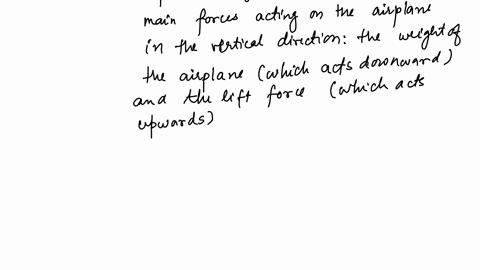 main forces acting on the airplane
in the vertical direction: the weight of
the airplane (which acts downward)
and the lift force (which acts
upwards)